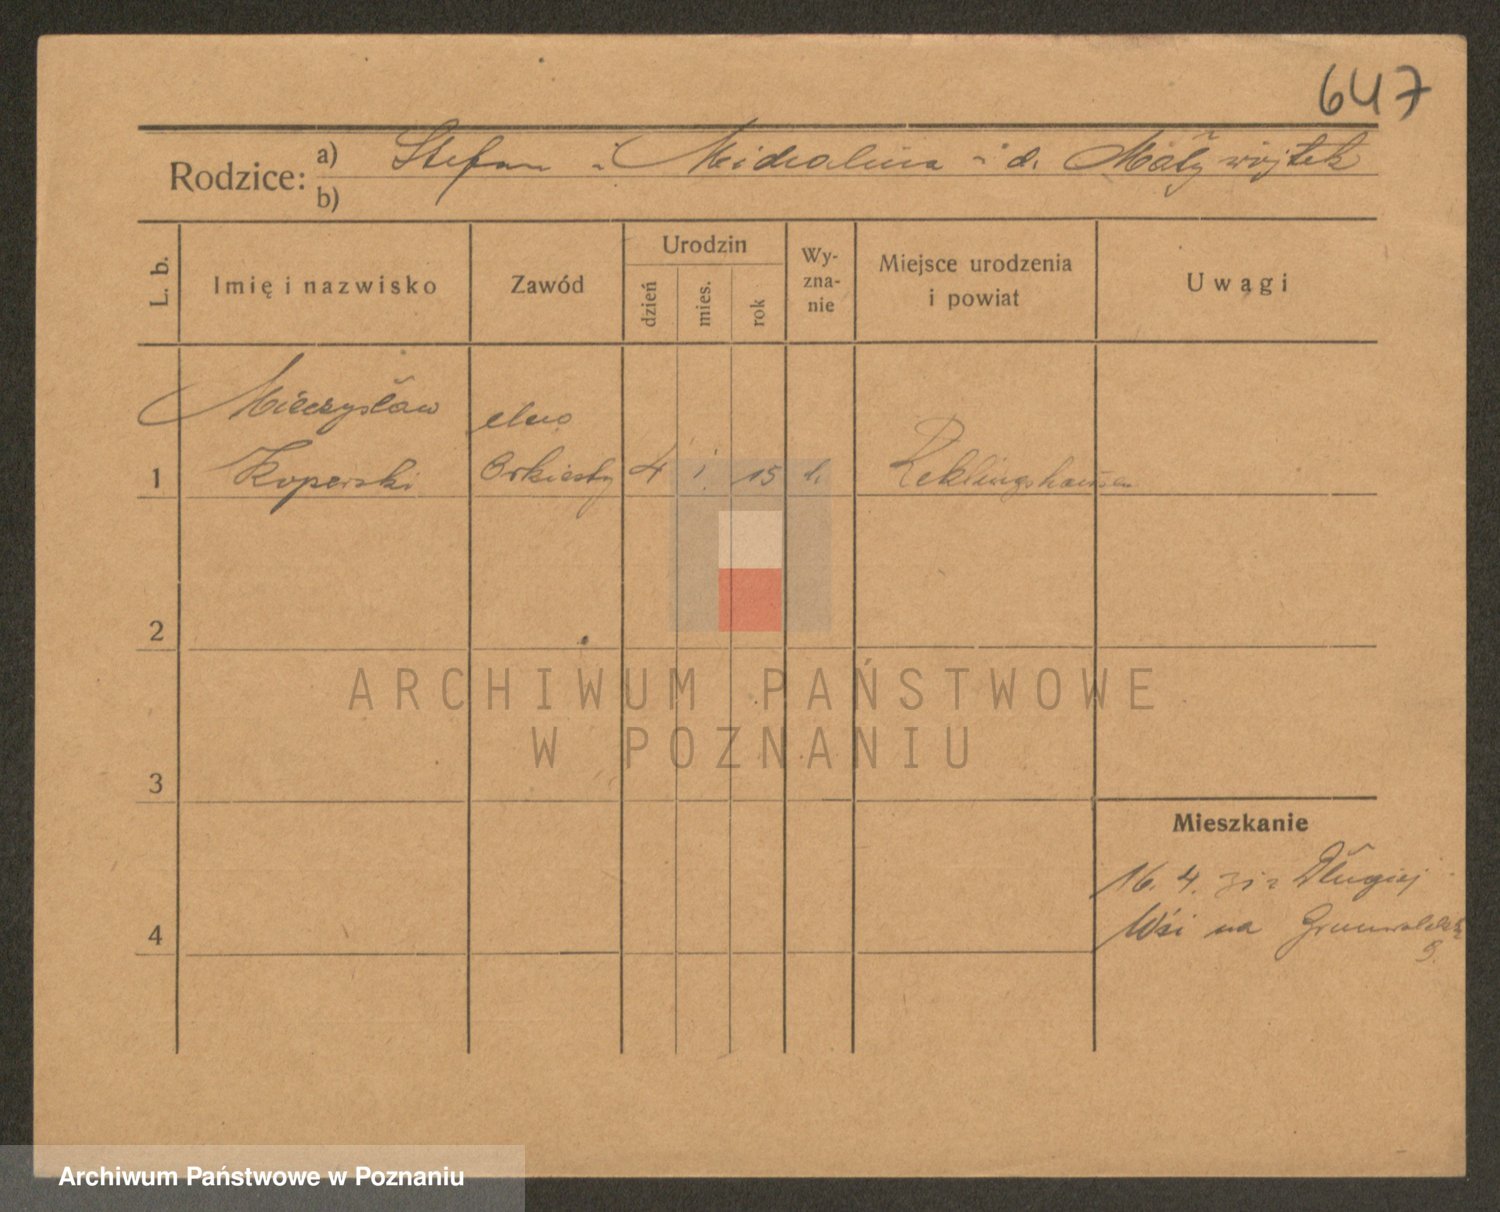 647
Rodzice: a) Stefan i d. Maływojtek
b)
L. b.
Imię i nazwisko
Zawód
Urodzin
dzień
mies.
rok
Wy-
zna-
nie
Miejsce urodzenia
i powiat
Uwagi
Mieczysław
Koperski
Orkiestry
4
1
15
Reklinghausen
1
2
3
4
Mieszkanie
16. 4. Długiej
Wsi na
5.
ARCHIWUM PAŃSTWOWE
W POZNANIU
Archiwum Państwowe w Poznaniu